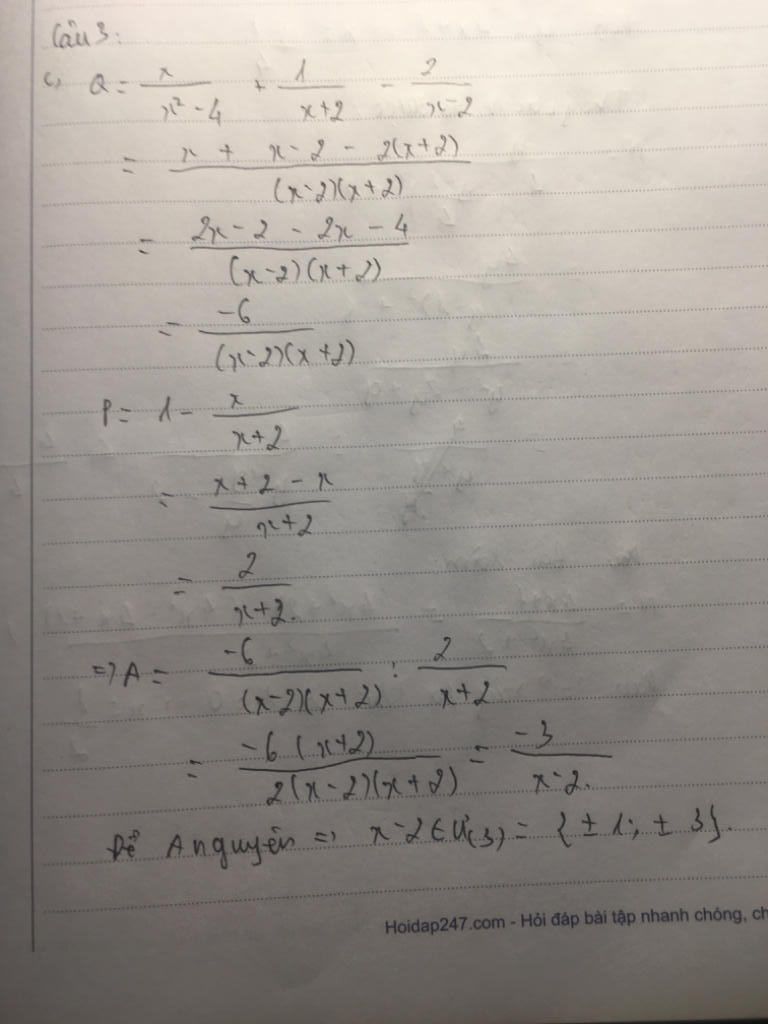 Câu 3:
c, Q = x/(x² - 4) + 1/(x+2) - 2/(x-2)
= (x + x-2 - 2(x+2))/((x-2)(x+2))
= (2x - 2 - 2x - 4)/((x-2)(x+2))
= -6/((x-2)(x+2))
P = 1 - x/(x+2)
= (x+2 - x)/(x+2)
= 2/(x+2).
=> A = -6/((x-2)(x+2)) : 2/(x+2)
= -6(x+2)/(2(x-2)(x+2)) = -3/(x-2).
Để A nguyên => x-2 ∈ Ư(3) = {±1; ±3}.
Hoidap247.com - Hỏi đáp bài tập nhanh chóng, ch